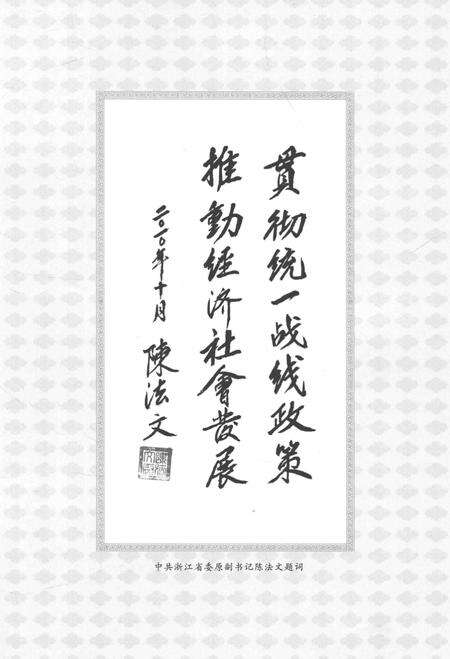 贯彻统一战线政策
推動经济社會發展
二〇一〇年十月 陳法文
中共浙江省委原副书记陈法文题词